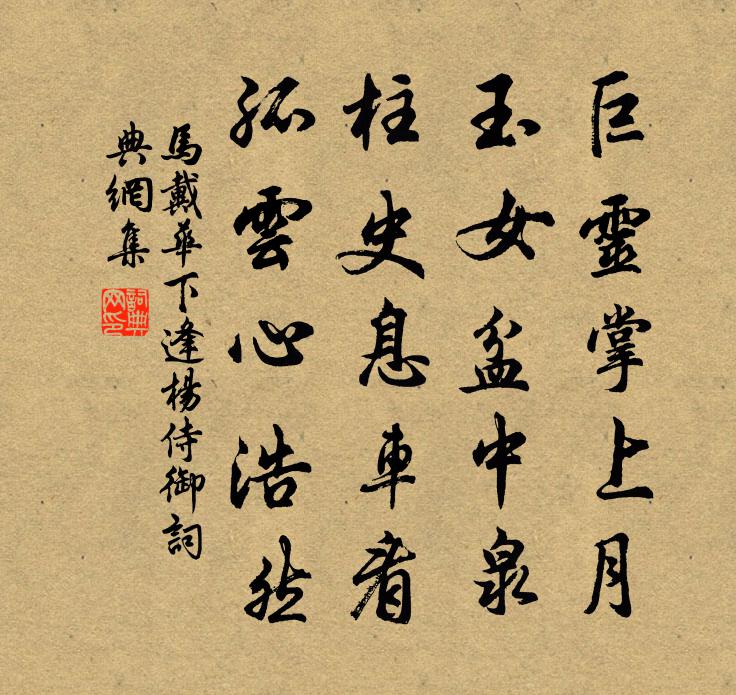 巨靈掌上月
玉女盆中泉
柱史息車看
孤雲心浩然
馬戴華下逢楊侍御詞
典網集
詞典
网印